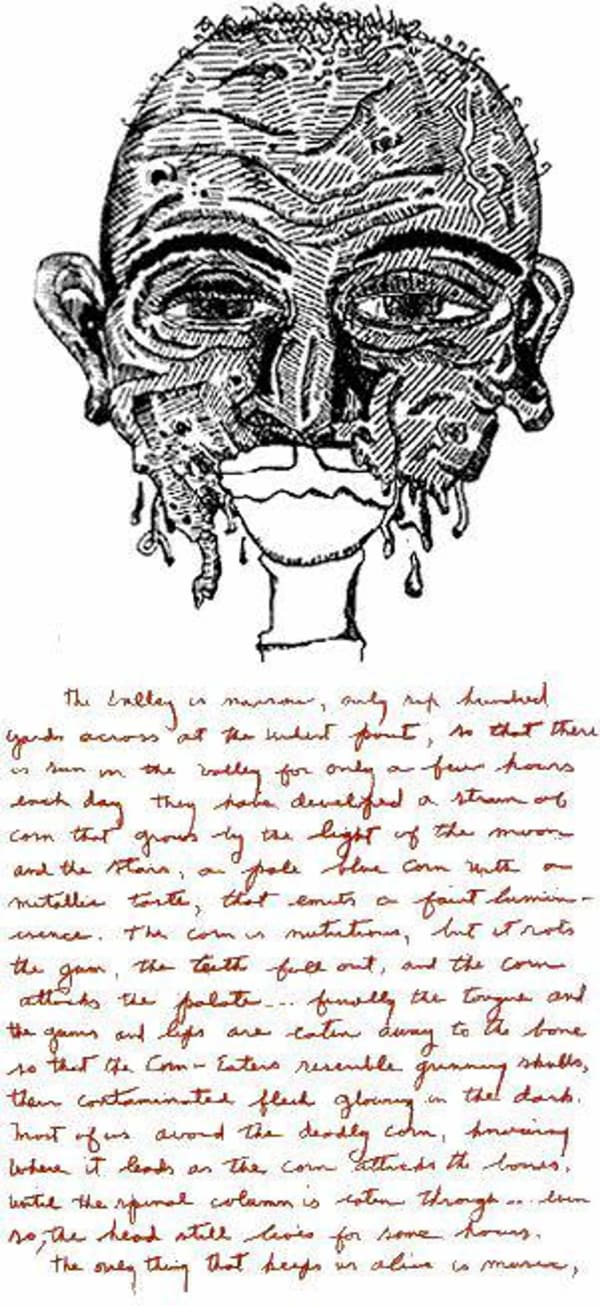 The Valley is narrow, only six hundred
yards across at the widest point, so that there
is sun in the valley for only a few hours
each day They have developed a strain of
corn that grows by the light of the moon
and the stars, a pale blue corn with a
metallic taste, that emits a faint lumin-
iscence. The corn is nutritious, but it rots
the gum, the teeth fall out, and the corn
attacks the palate... finally the tongue and
the gums and lips are eaten away to the bone
so that the Corn-Eaters resemble grinning skulls,
their contaminated flesh glowing in the dark.
Most of us avoid the deadly corn, knowing
where it leads as the corn attacks the bones.
Until the spinal column is eaten through... even
so, the head still lives for some hours.
The only thing that keeps us alive is music,